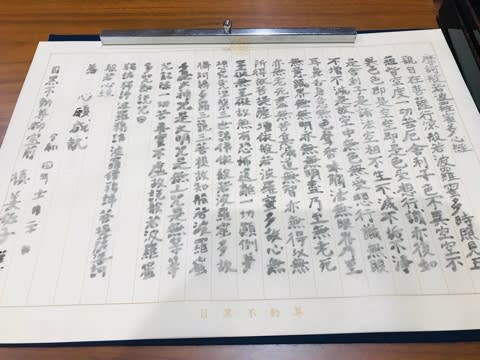 摩訶般若波羅蜜多心経
観自在菩薩行深般若波羅蜜多時照見五
蘊皆空度一切苦厄舎利子色不異空空不
異色色即是空空即是色受想行識亦復如
是舎利子是諸法空相不生不滅不垢不浄
不増不減是故空中無色無受想行識無眼
耳鼻舌身意無色声香味触法無眼界乃至
無意識界無無明亦無無明尽乃至無老死
亦無老死尽無苦集滅道無智亦無得以無
所得故菩提薩埵依般若波羅蜜多故心無
罣礙無罣礙故無有恐怖遠離一切顛倒夢
想究竟涅槃三世諸仏依般若波羅蜜多故
得阿耨多羅三藐三菩提故知般若波羅蜜
多是大神呪是大明呪是無上呪是無等等
呪能除一切苦真実不虚故説般若波羅蜜
多呪即説呪曰
羯諦羯諦波羅羯諦波羅僧羯諦菩提薩婆訶
般若心経
為 心願成就
令和四年十一月
目黒不動尊
目黒不動尊